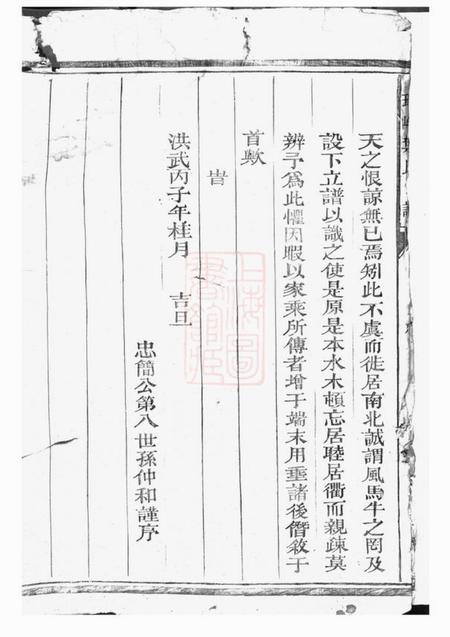 天之恨諒無已焉矧此不虞而徙居南北誠謂風馬牛之罔及
設下立譜以識之使是原是本水木頓忘居睦居衢而親疎莫
辨予為此懼因暇以家乘所傳者增于端末用垂諸後僭敘于
首歟
旹
洪武丙子年桂月 吉旦
忠簡公第八世孫仲和謹序